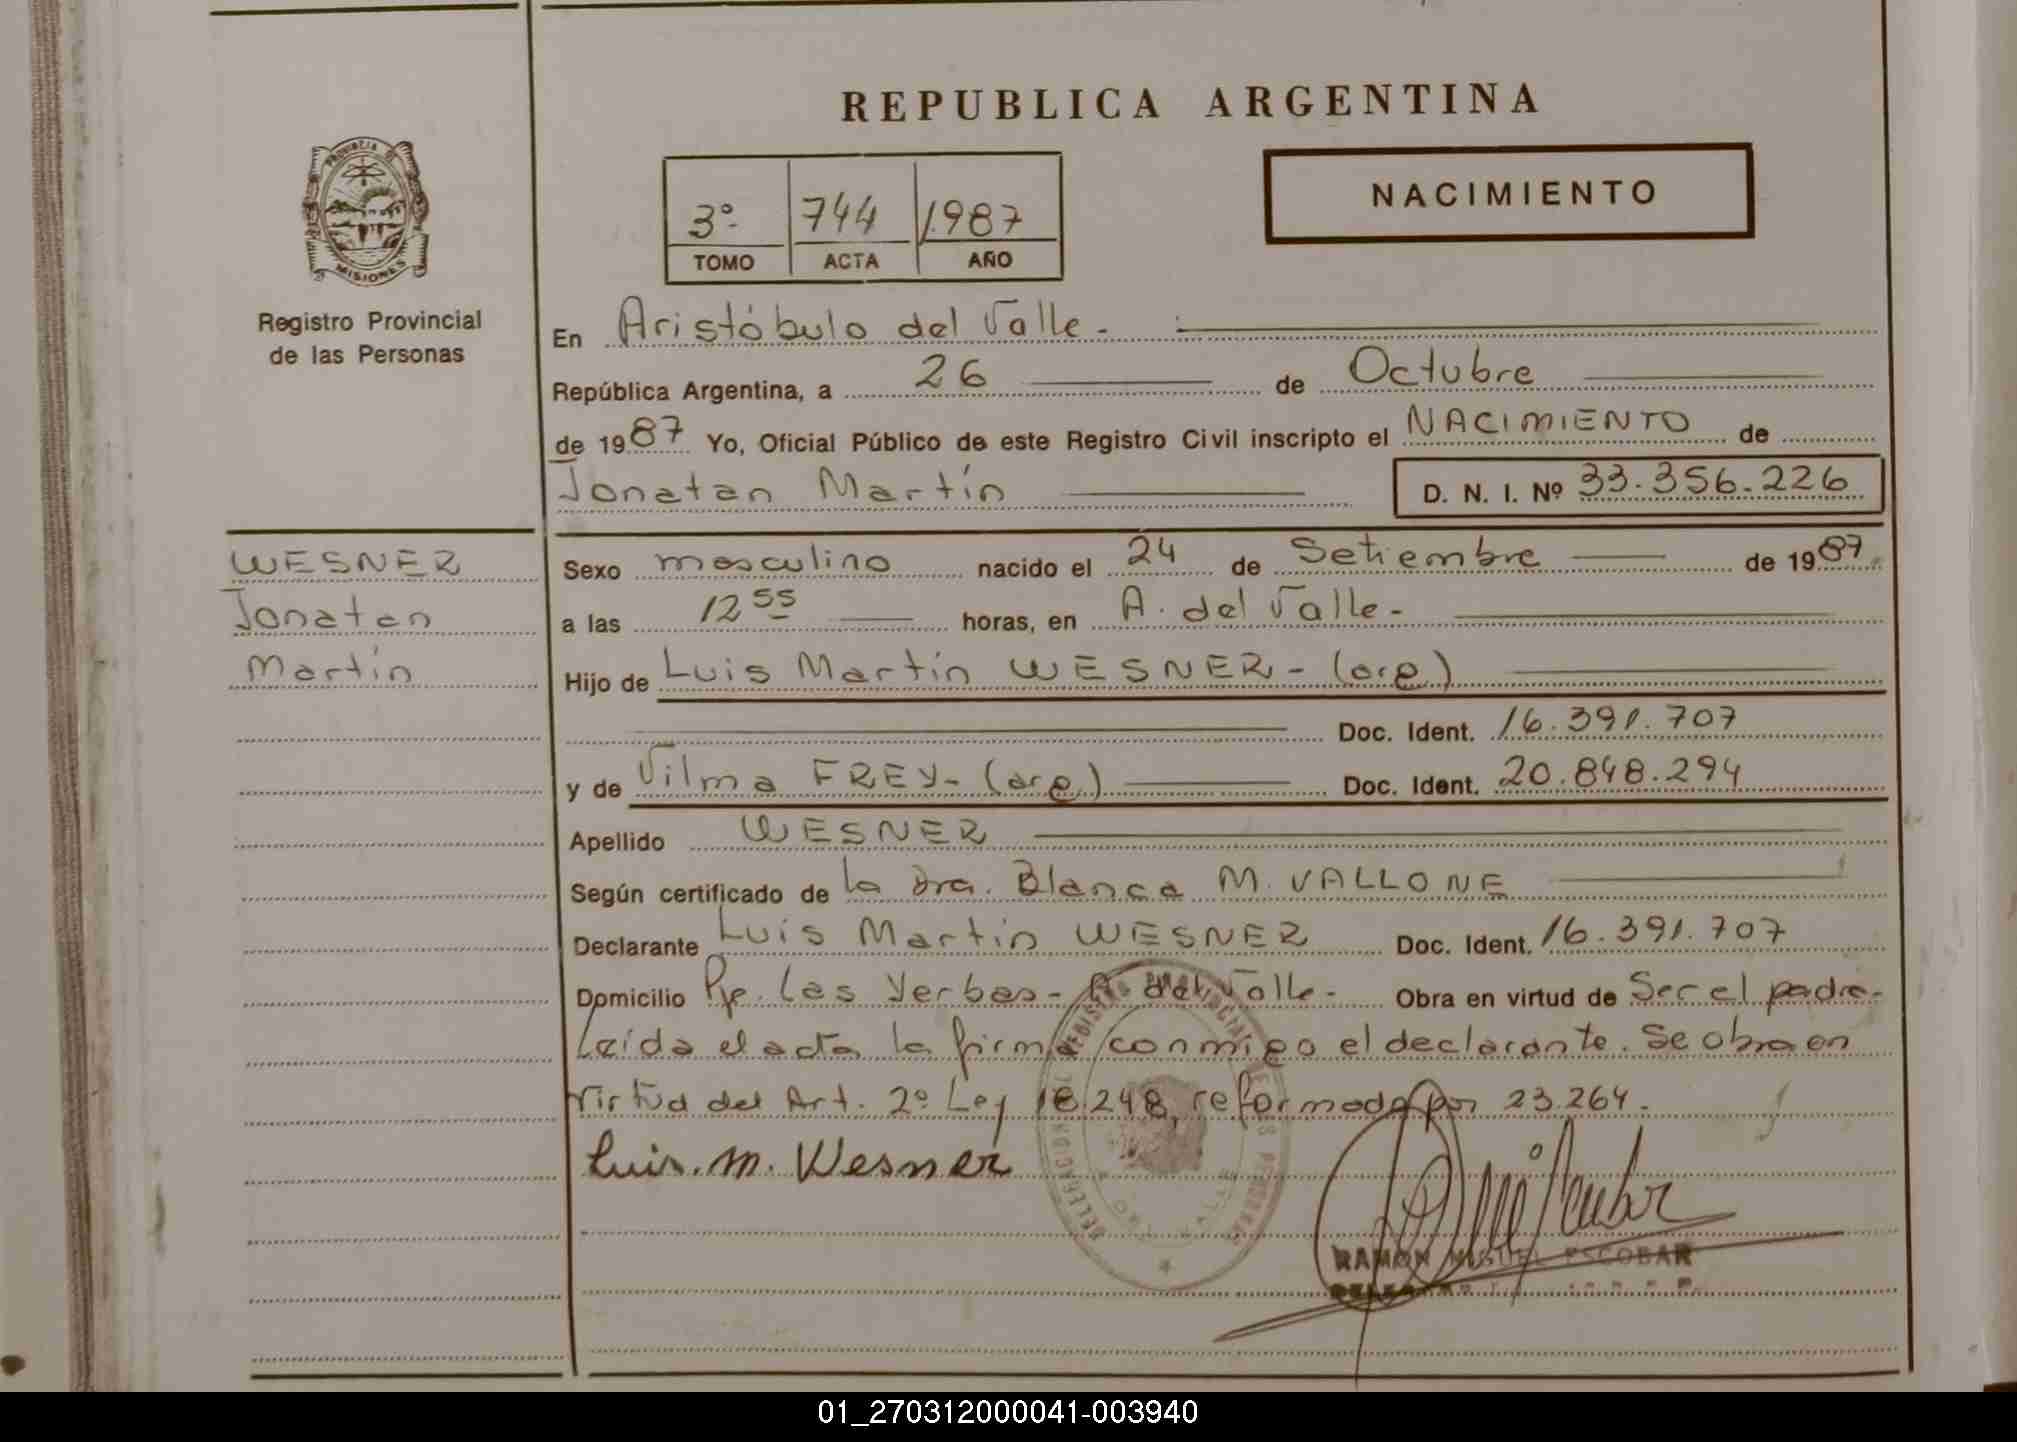 REPUBLICA ARGENTINA
PROVINCIA DE
MISIONES
Registro Provincial
de las Personas
3º 744 1987
TOMO ACTA AÑO
NACIMIENTO
En Aristóbulo del Valle.-
República Argentina, a 26 de Octubre
de 1987 Yo, Oficial Público de este Registro Civil inscripto el NACIMIENTO de
Jonatan Martín D. N. I. Nº 33.356.226
WESNER
Jonatan
Martín
Sexo masculino nacido el 24 de Setiembre de 1987
a las 12 55 horas, en A. del Valle.-
Hijo de Luis Martín WESNER - (arg)
Doc. Ident. 16.391.707
y de Vilma FREY - (arg) Doc. Ident. 20.848.294
Apellido WESNER
Según certificado de la Dra. Blanca M. VALLONE
Declarante Luis Martín WESNER Doc. Ident. 16.391.707
Domicilio Pje. Las Yerbas - A. del Valle - Obra en virtud de Ser el padre-
Leída el acta la firma conmigo el declarante. Se obra en
virtud del Art. 2º Ley 18.248, reformada por 23.264.
Luis. M. Wesner
RAMON MIGUEL ESCOBAR
01_270312000041-003940